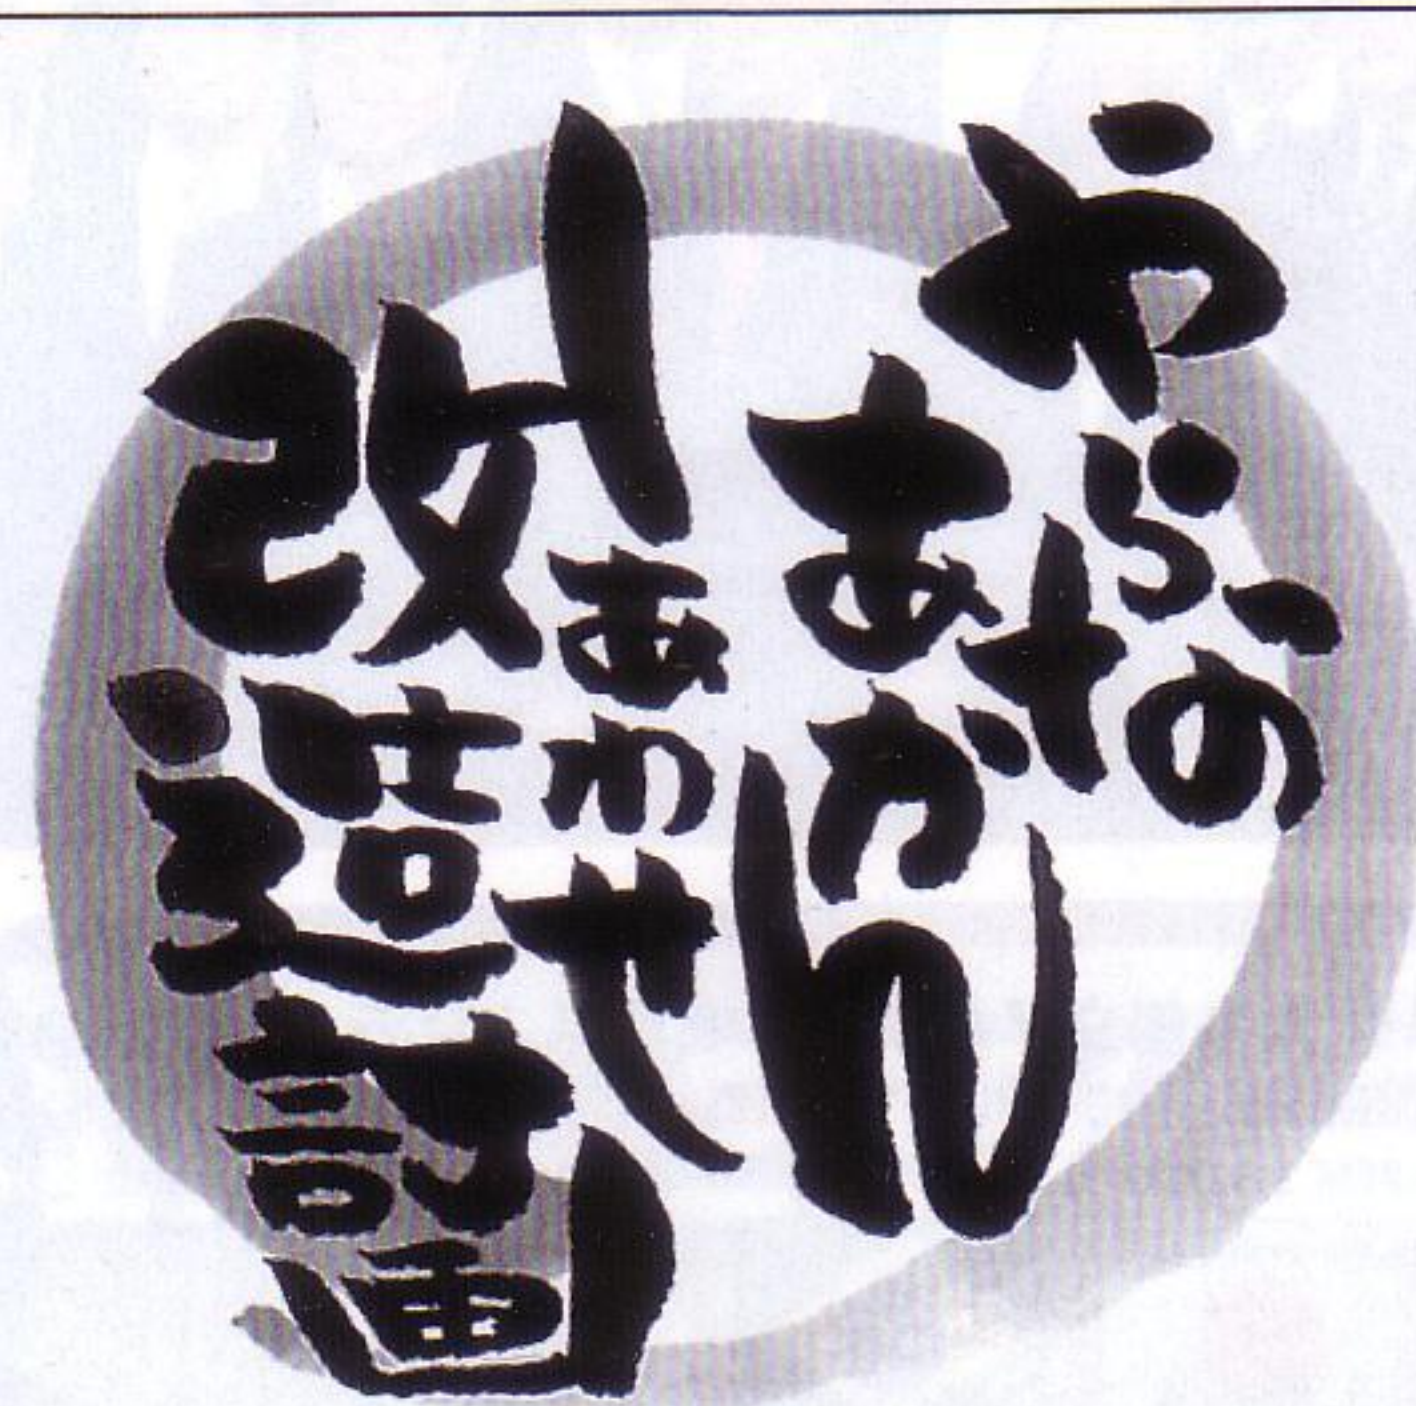 やらな
あかん
しあわせ
改造計画